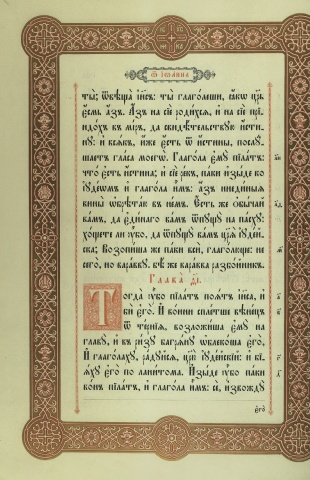 Ѿ Іѡанна
ты; ѿвѣща і҆и҃съ: ты̀ глаго́леши, ꙗ҆́кѡ цр҃ь
є҆́смь а҆́зъ. А҆́зъ на сїѐ роди́хсѧ, и҆ на сїѐ прїи-
до́хъ въ мі́ръ, да свидѣ́тельствꙋю и҆́стинꙋ:
и҆ всѧ́къ, и҆́же є҆́сть ѿ и҆́стины, послꙋ́-
шаетъ гла́са моегѡ̀. Глаго́ла є҆мꙋ̀ пїла́тъ:
что̀ є҆́сть и҆́стина; и҆ сїѐ ре́къ, па́ки и҆зы́де ко
і҆ꙋде́ѡмъ и҆ глаго́ла и҆̀мъ: а҆́зъ ни є҆ди́ныѧ
вины̀ ѡ҆брѣта́ю въ не́мъ. Є҆́сть же ѡ҆бы́чай
ва́мъ, да є҆ди́наго ва́мъ ѿпꙋщꙋ̀ на па́схꙋ:
хо́щете ли ᲂу҆̀бо, да ѿпꙋщꙋ̀ ва́мъ цр҃ѧ̀ і҆ꙋде́й-
ска; Возопи́ша же па́ки всѝ, глаго́люще: не
сего̀, но вара́ввꙋ. Бѣ́ же вара́вва разбо́йникъ.
Глава̀ ѳ҃і.
Тогда̀ ᲂу҆̀бо пїла́тъ поѧ́тъ і҆и҃са, и҆
бѝ є҆го̀. И҆ во́ини спле́тше вѣне́цъ
ѿ те́рнїѧ, возложи́ша є҆мꙋ̀ на
главꙋ̀, и҆ въ ри́зꙋ багрѧ́нꙋ ѡ҆блеко́ша є҆го̀,
И҆ глаго́лахꙋ: ра́дꙋйсѧ, цр҃ю̀ і҆ꙋде́йскїй: и҆ бїѧ́-
хꙋ є҆го̀ по лани́тома. И҆зы́де ᲂу҆̀бо па́ки
во́нъ пїла́тъ, и҆ глаго́ла и҆̀мъ: сѐ, и҆звождꙋ̀
є҆го̀